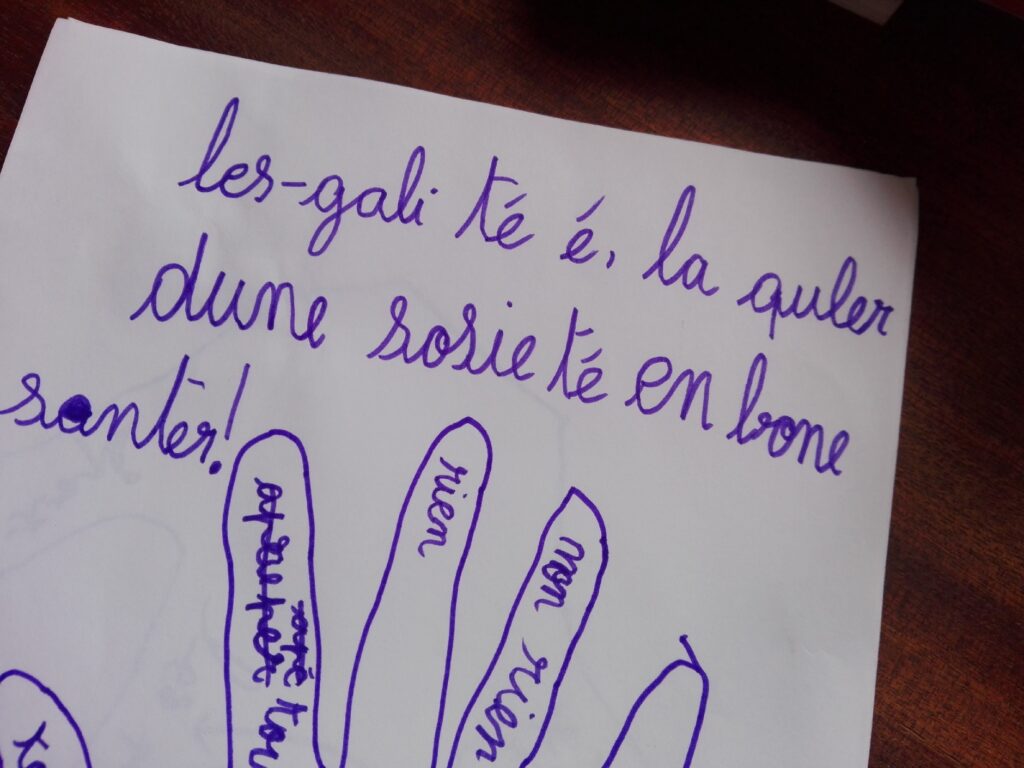 les-gali té é, la quler
dune sosieté en bone
santèr!
rien
mon rien